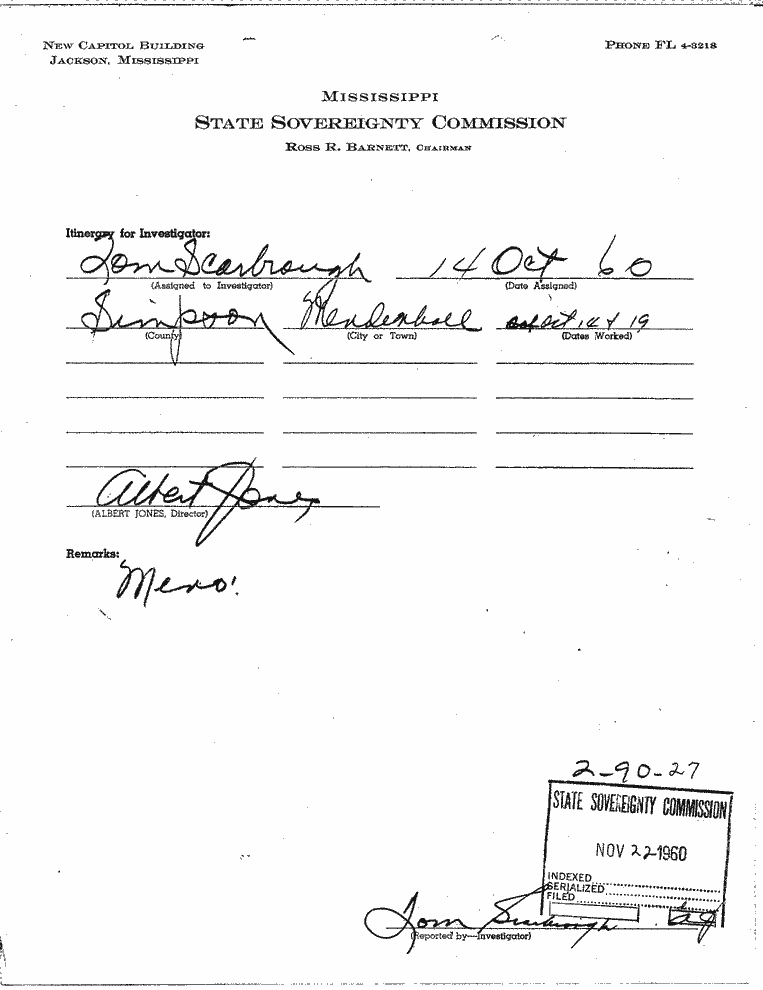 NEW CAPITOL BUILDING
JACKSON, MISSISSIPPI
PHONE FL 4-3218
MISSISSIPPI
STATE SOVEREIGNTY COMMISSION
ROSS R. BARNETT, CHAIRMAN
Itinerary for Investigator:
Tom Scarbrough 14 Oct 60
(Assigned to Investigator) (Date Assigned)
Simpson Mendenhall Oct 14 & 19
(County) (City or Town) (Dates Worked)
Albert Jones
(ALBERT JONES, Director)
Remarks:
Memo!
2-90-27
STATE SOVEREIGNTY COMMISSION
NOV 22 1960
INDEXED
SERIALIZED
FILED
Tom Scarbrough
(Reported by—Investigator)